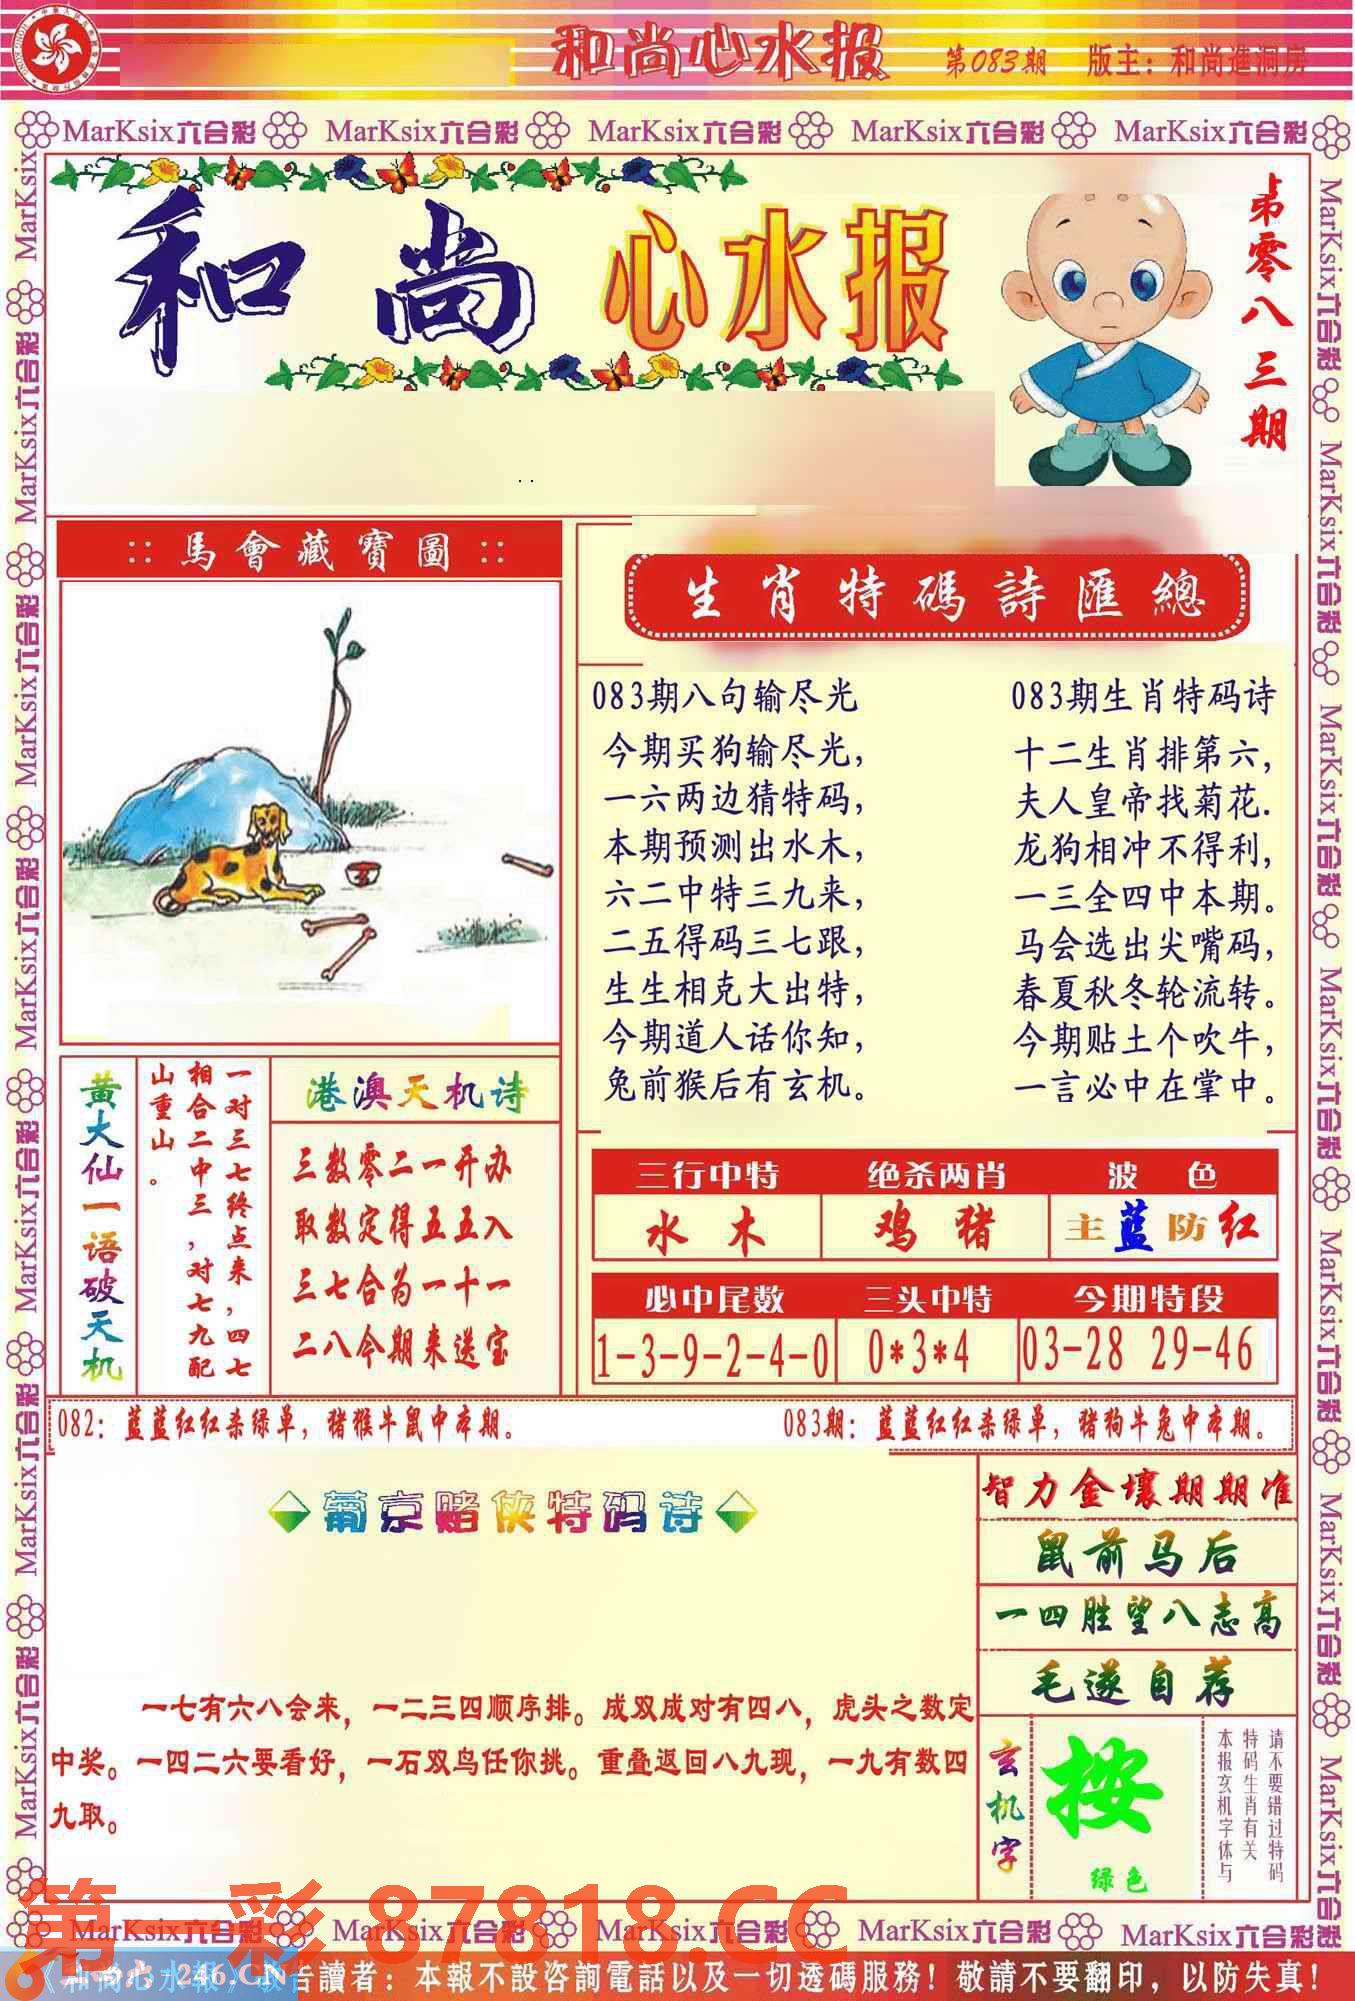 和尚心水报 第083期 版主：和尚進洞房
MarKsix六合彩 MarKsix六合彩 MarKsix六合彩 MarKsix六合彩 MarKsix六合彩
和尚心水报
弟零八三期
:: 馬會藏寶圖 ::
生肖特碼詩匯總
083期八句输尽光
今期买狗输尽光，
一六两边猜特码，
本期预测出水木，
六二中特三九来，
二五得码三七跟，
生生相克大出特，
今期道人话你知，
兔前猴后有玄机。
083期生肖特码诗
十二生肖排第六，
夫人皇帝找菊花.
龙狗相冲不得利，
一三全四中本期。
马会选出尖嘴码，
春夏秋冬轮流转。
今期贴土个吹牛，
一言必中在掌中。
黄大仙一语破天机
一对三七终点来，四七
相合二中三，对七九配
山重山。
港澳天机诗
三数零二一开办
取数定得五五入
三七合为一十一
二八今期来送宝
三行中特 绝杀两肖 波色
水木 鸡猪 主蓝防红
必中尾数 三头中特 今期特段
1-3-9-2-4-0 0*3*4 03-28 29-46
082：蓝蓝红红杀绿单，猪猴牛鼠中本期。
083期：蓝蓝红红杀绿单，猪狗牛兔中本期。
葡京赌侠特码诗
一七有六八会来，一二三四顺序排。成双成对有四八，虎头之数定
中奖。一四二六要看好，一石双鸟任你挑。重叠返回八九现，一九有数四
九取。
智力金壤期期准
鼠前马后
一四胜望八志高
毛遂自荐
玄机字
按
绿色
请不要错过特码
特码生肖有关
本报玄机字体与
第一彩 87818.CC
MarKsix六合彩 MarKsix六合彩 MarKsix六合彩 MarKsix六合彩 MarKsix六合彩
246.CN
告讀者：本報不設咨詢電話以及一切透碼服務！敬請不要翻印，以防失真！